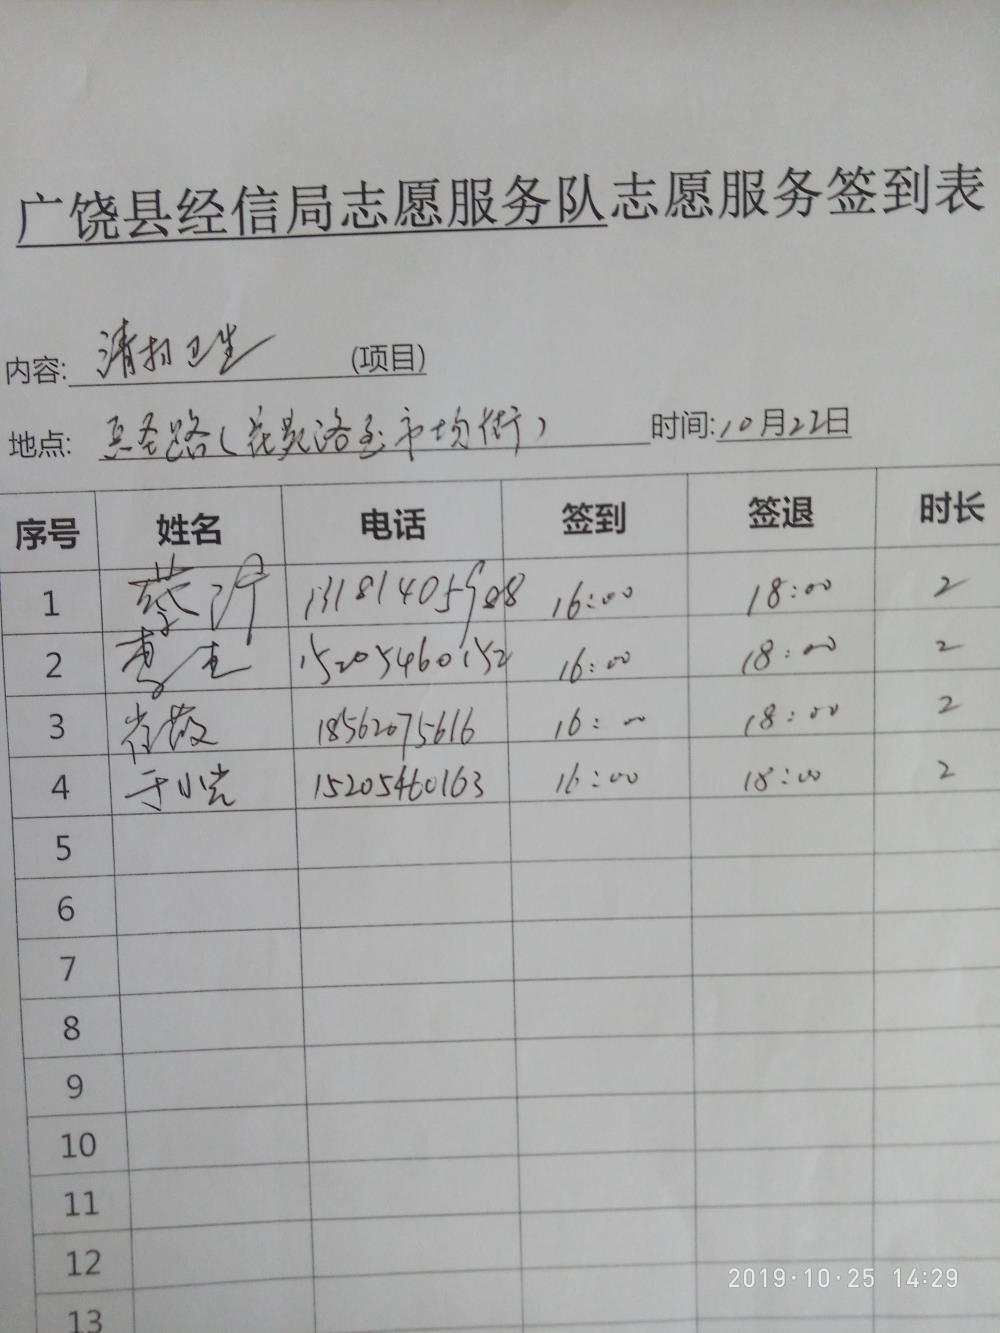 广饶县经信局志愿服务队志愿服务签到表
内容: 清扫卫生 (项目)
地点: 路( 路至市场街) 时间:10月22日
序号 姓名 电话 签到 签退 时长
1 蔡 13181405908 16:00 18:00 2
2 15205460152 16:00 18:00 2
3 18562075616 16:00 18:00 2
4 于小 15205460163 16:00 18:00 2
5
6
7
8
9
10
11
12
13
2019·10·25 14:29